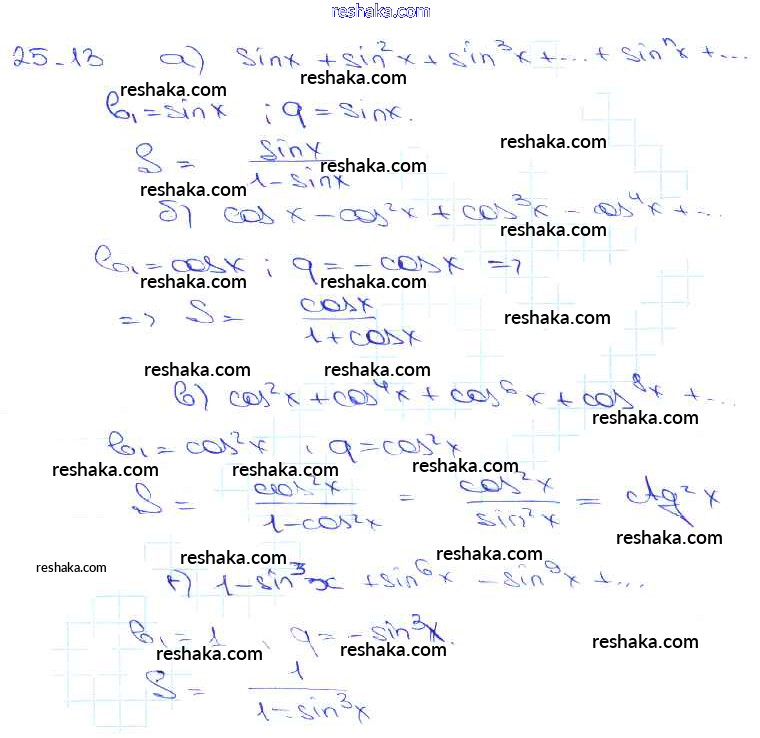 reshaka.com
25-13 а) sinx + sin²x + sin³x + ... + sinⁿx + ...
reshaka.com reshaka.com
b₁ = sinx ; q = sinx.
reshaka.com
S = sinx / 1 - sinx
reshaka.com
reshaka.com
б) cos x - cos²x + cos³x - cos⁴x + ...
reshaka.com
b₁ = cosx ; q = -cosx =>
reshaka.com reshaka.com
=> S = cosx / 1 + cosx
reshaka.com
reshaka.com reshaka.com
в) cos²x + cos⁴x + cos⁶x + cos⁸x + ...
reshaka.com
b₁ = cos²x , q = cos²x
reshaka.com reshaka.com reshaka.com
S = cos²x / 1 - cos²x = cos²x / sin²x = ctg²x
reshaka.com
reshaka.com reshaka.com reshaka.com
г) 1 - sin³x + sin⁶x - sin⁹x + ...
b₁ = 1 , q = -sin³x.
reshaka.com reshaka.com reshaka.com
S = 1 / 1 = sin³x